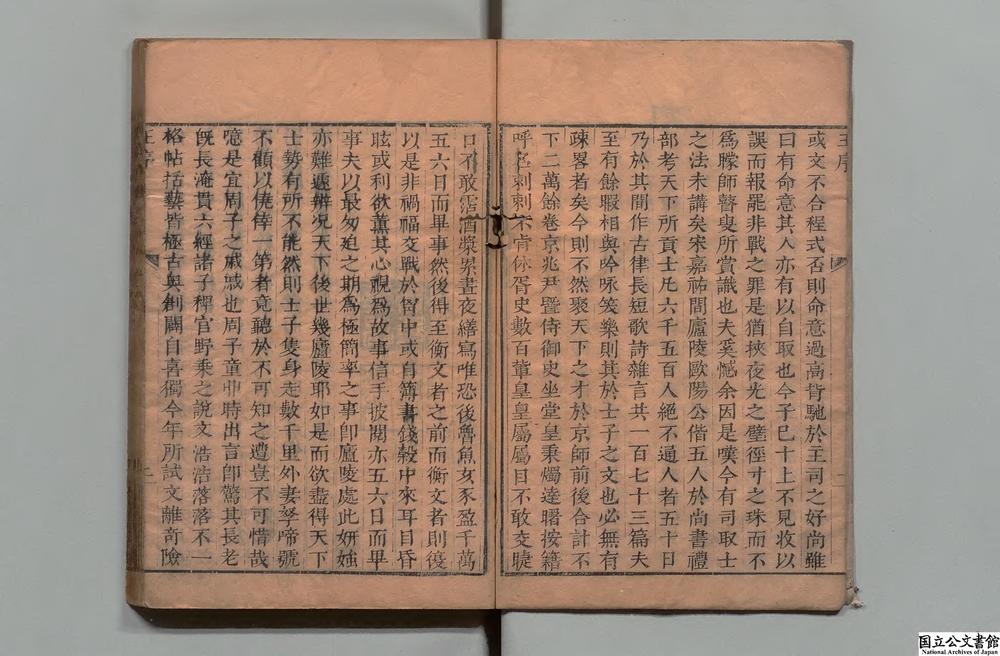 或文不合程式否則命意過高背馳於王司之好尚雖
曰有命意其人亦有以自取也今子巳十上不見收以
誤而報罷非戰之罪是猶挾夜光之璧徑寸之珠而不
爲矇師瞽叟所賞識也夫奚憾余因是嘆今有司取士
之法未講矣宋嘉祐間廬陵歐陽公偕五人於尚書禮
部考天下所貢士凡六千五百人絕不通人者五十日
乃於其間作古律長短歌詩雜言共一百七十三篇夫
至有餘暇相與吟咏笑樂則其於士子之文也必無有
疎畧者矣今則不然聚天下之才於京師前後合計不
下二萬餘卷京兆尹暨侍御史坐堂皇秉燭達曙按籍
呼名剌剌不肯休胥史數百輩皇皇屬屬目不敢交睫
口不敢霑酒漿累晝夜繕寫唯恐後魯魚亥豕盈千萬
五六日而畢事然後得至衡文者之前而衡文者則復
以是非禍福交戰於胷中或自簿書錢穀中來耳目昏
眩或利欲薰其心視爲故事信手披閱亦五六日而畢
事夫以最匆廹之期爲極簡率之事卽廬陵處此妍媸
亦難遽辨况天下後世幾廬陵耶如是而欲盡得天下
士勢有所不能然則士子隻身走數千里外妻孥啼號
不顧以僥倖一第者竟聽於不可知之遭豈不可惜哉
噫是宜周子之戚戚也周子童丱時出言卽驚其長老
旣長淹貫六經諸子稗官野乘之說文浩浩落落不一
格帖括藝皆極古奥創闢自喜獨今年所試文離奇險
国立公文書館
National Archives of Japan